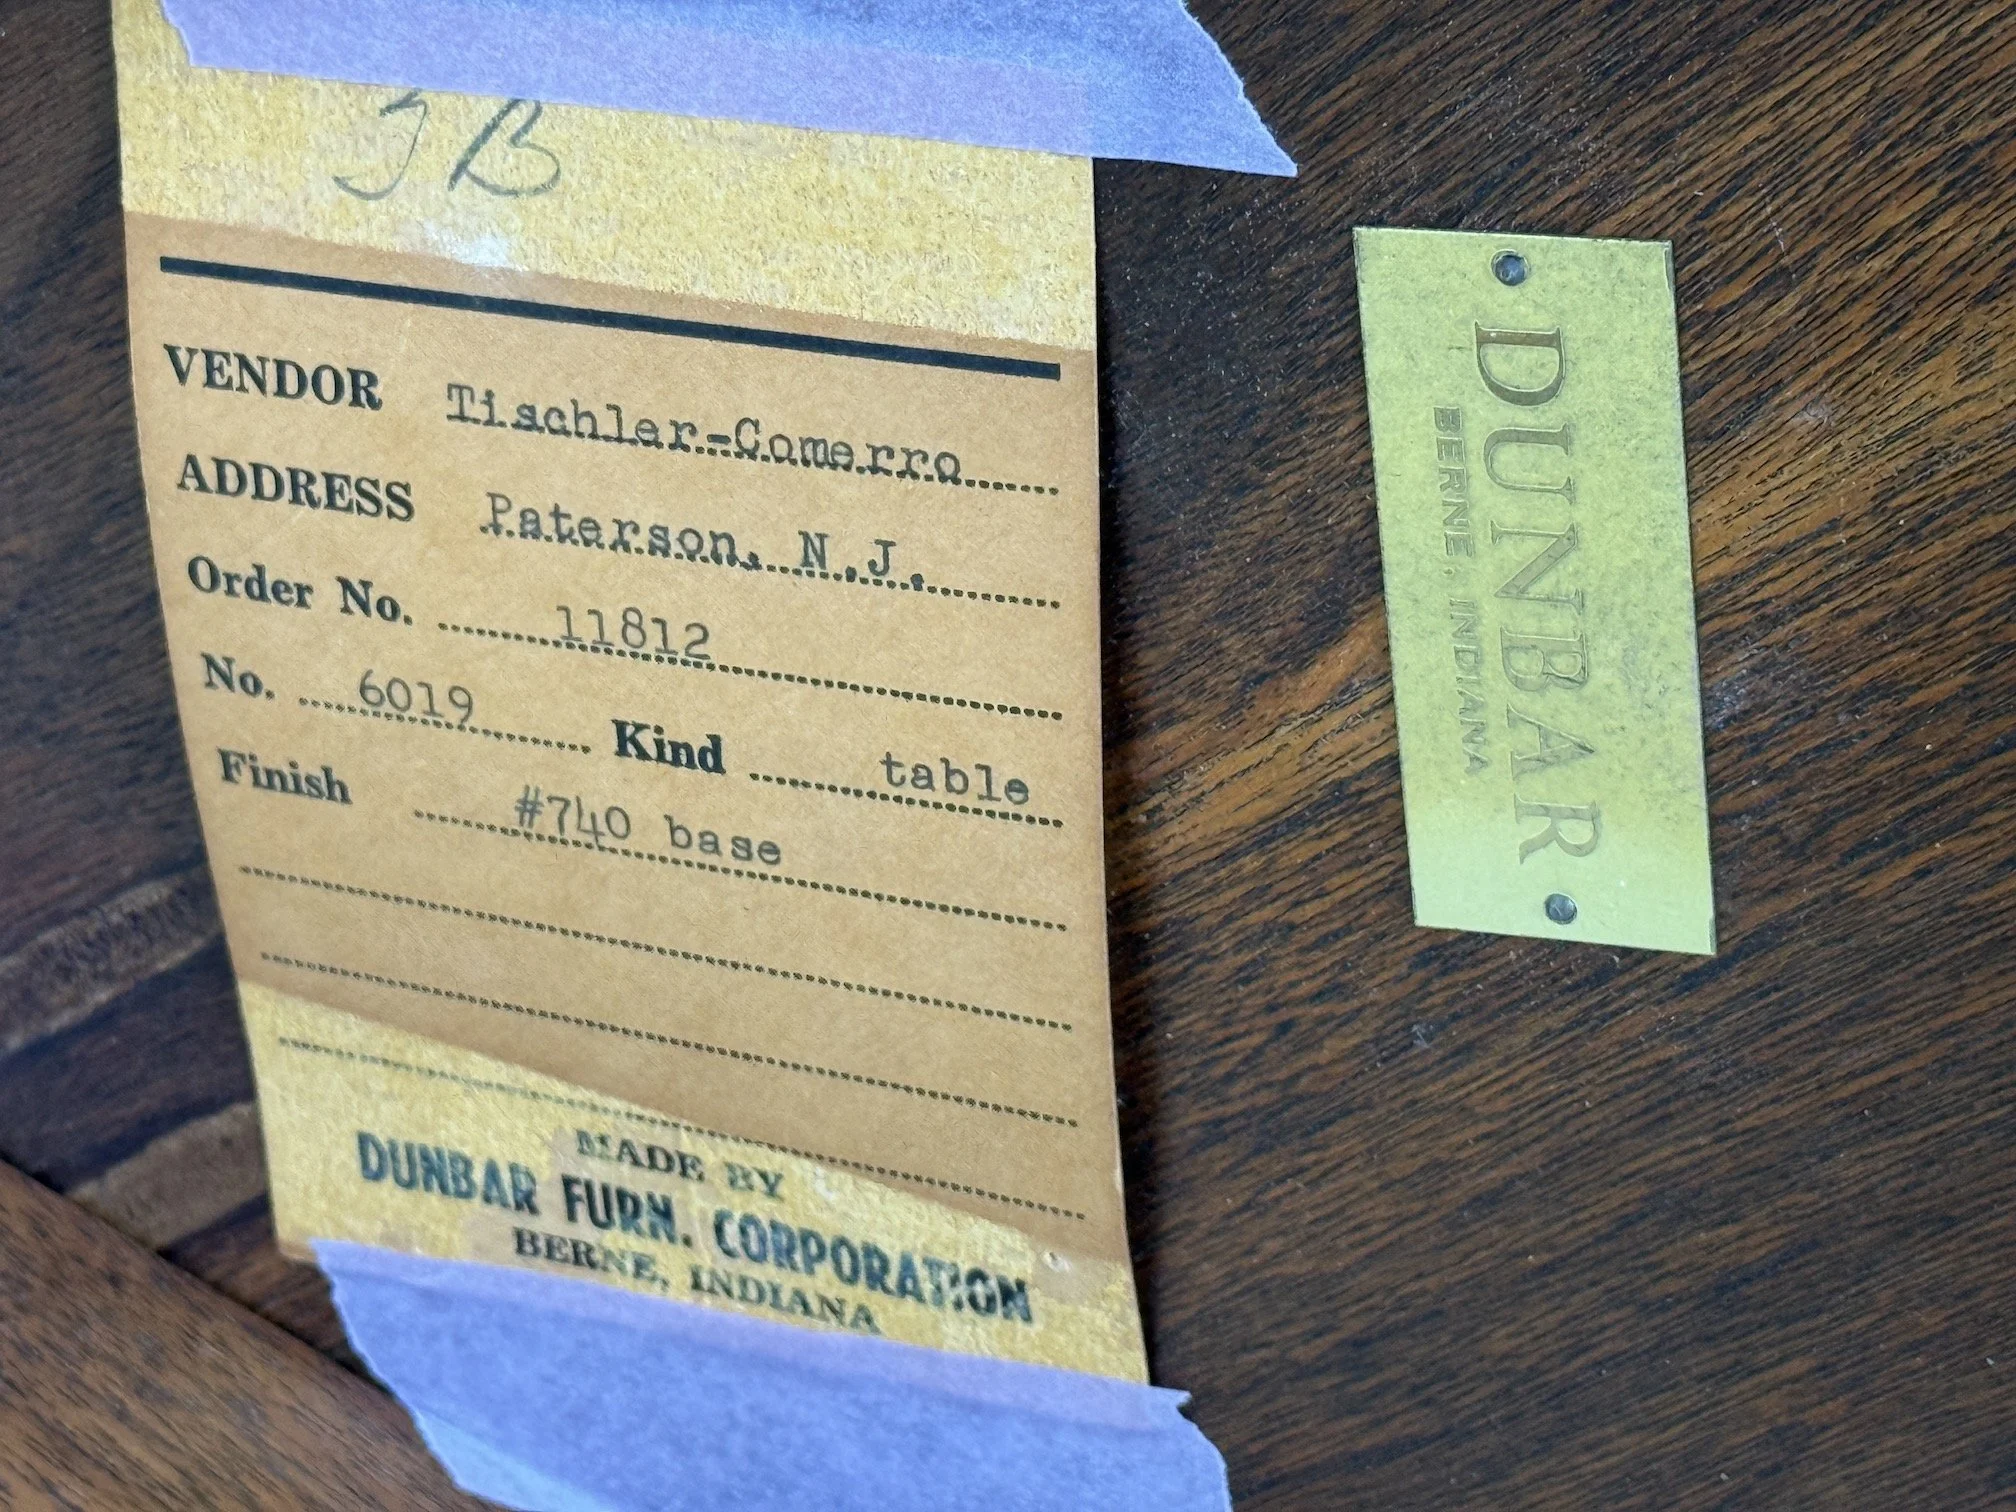 JB
VENDOR Tischler-Comerro
ADDRESS Paterson, N.J.
Order No. 11812
No. 6019 Kind table
Finish #740 base
MADE BY
DUNBAR FURN. CORPORATION
BERNE, INDIANA
DUNBAR
BERNE, INDIANA